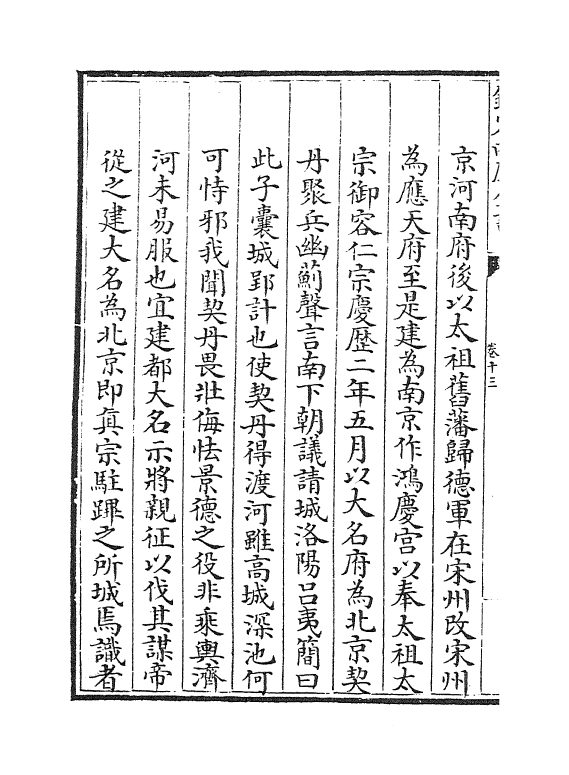 卷十三
京河南府後以太祖舊藩歸德軍在宋州改宋州
為應天府至是建為南京作鴻慶宫以奉太祖太
宗御容仁宗慶歴二年五月以大名府為北京契
丹聚兵幽薊聲言南下朝議請城洛陽吕夷簡曰
此子囊城郢計也使契丹得渡河雖高城深池何
可恃邪我聞契丹畏壯侮怯景德之役非乘輿濟
河未易服也宜建都大名示將親征以伐其謀帝
從之建大名為北京即真宗駐蹕之所城焉識者